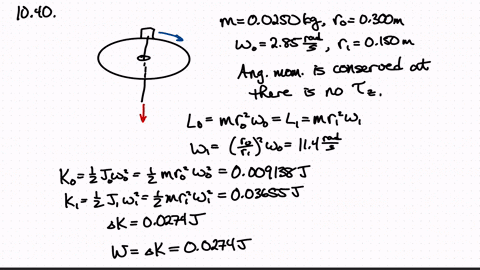 10.40.
m = 0.0250 kg, r₀ = 0.300 m
ω₀ = 2.85 rad/s, r₁ = 0.150 m
Ang. mom. is conserved at
there is no τ_z.
L₀ = mr₀²ω₀ = L₁ = mr₁²ω₁
ω₁ = (r₀/r₁)²ω₀ = 11.4 rad/s
K₀ = ½ J₀ω₀² = ½ mr₀²ω₀² = 0.009138 J
K₁ = ½ J₁ω₁² = ½ mr₁²ω₁² = 0.03655 J
ΔK = 0.0274 J
W = ΔK = 0.0274 J